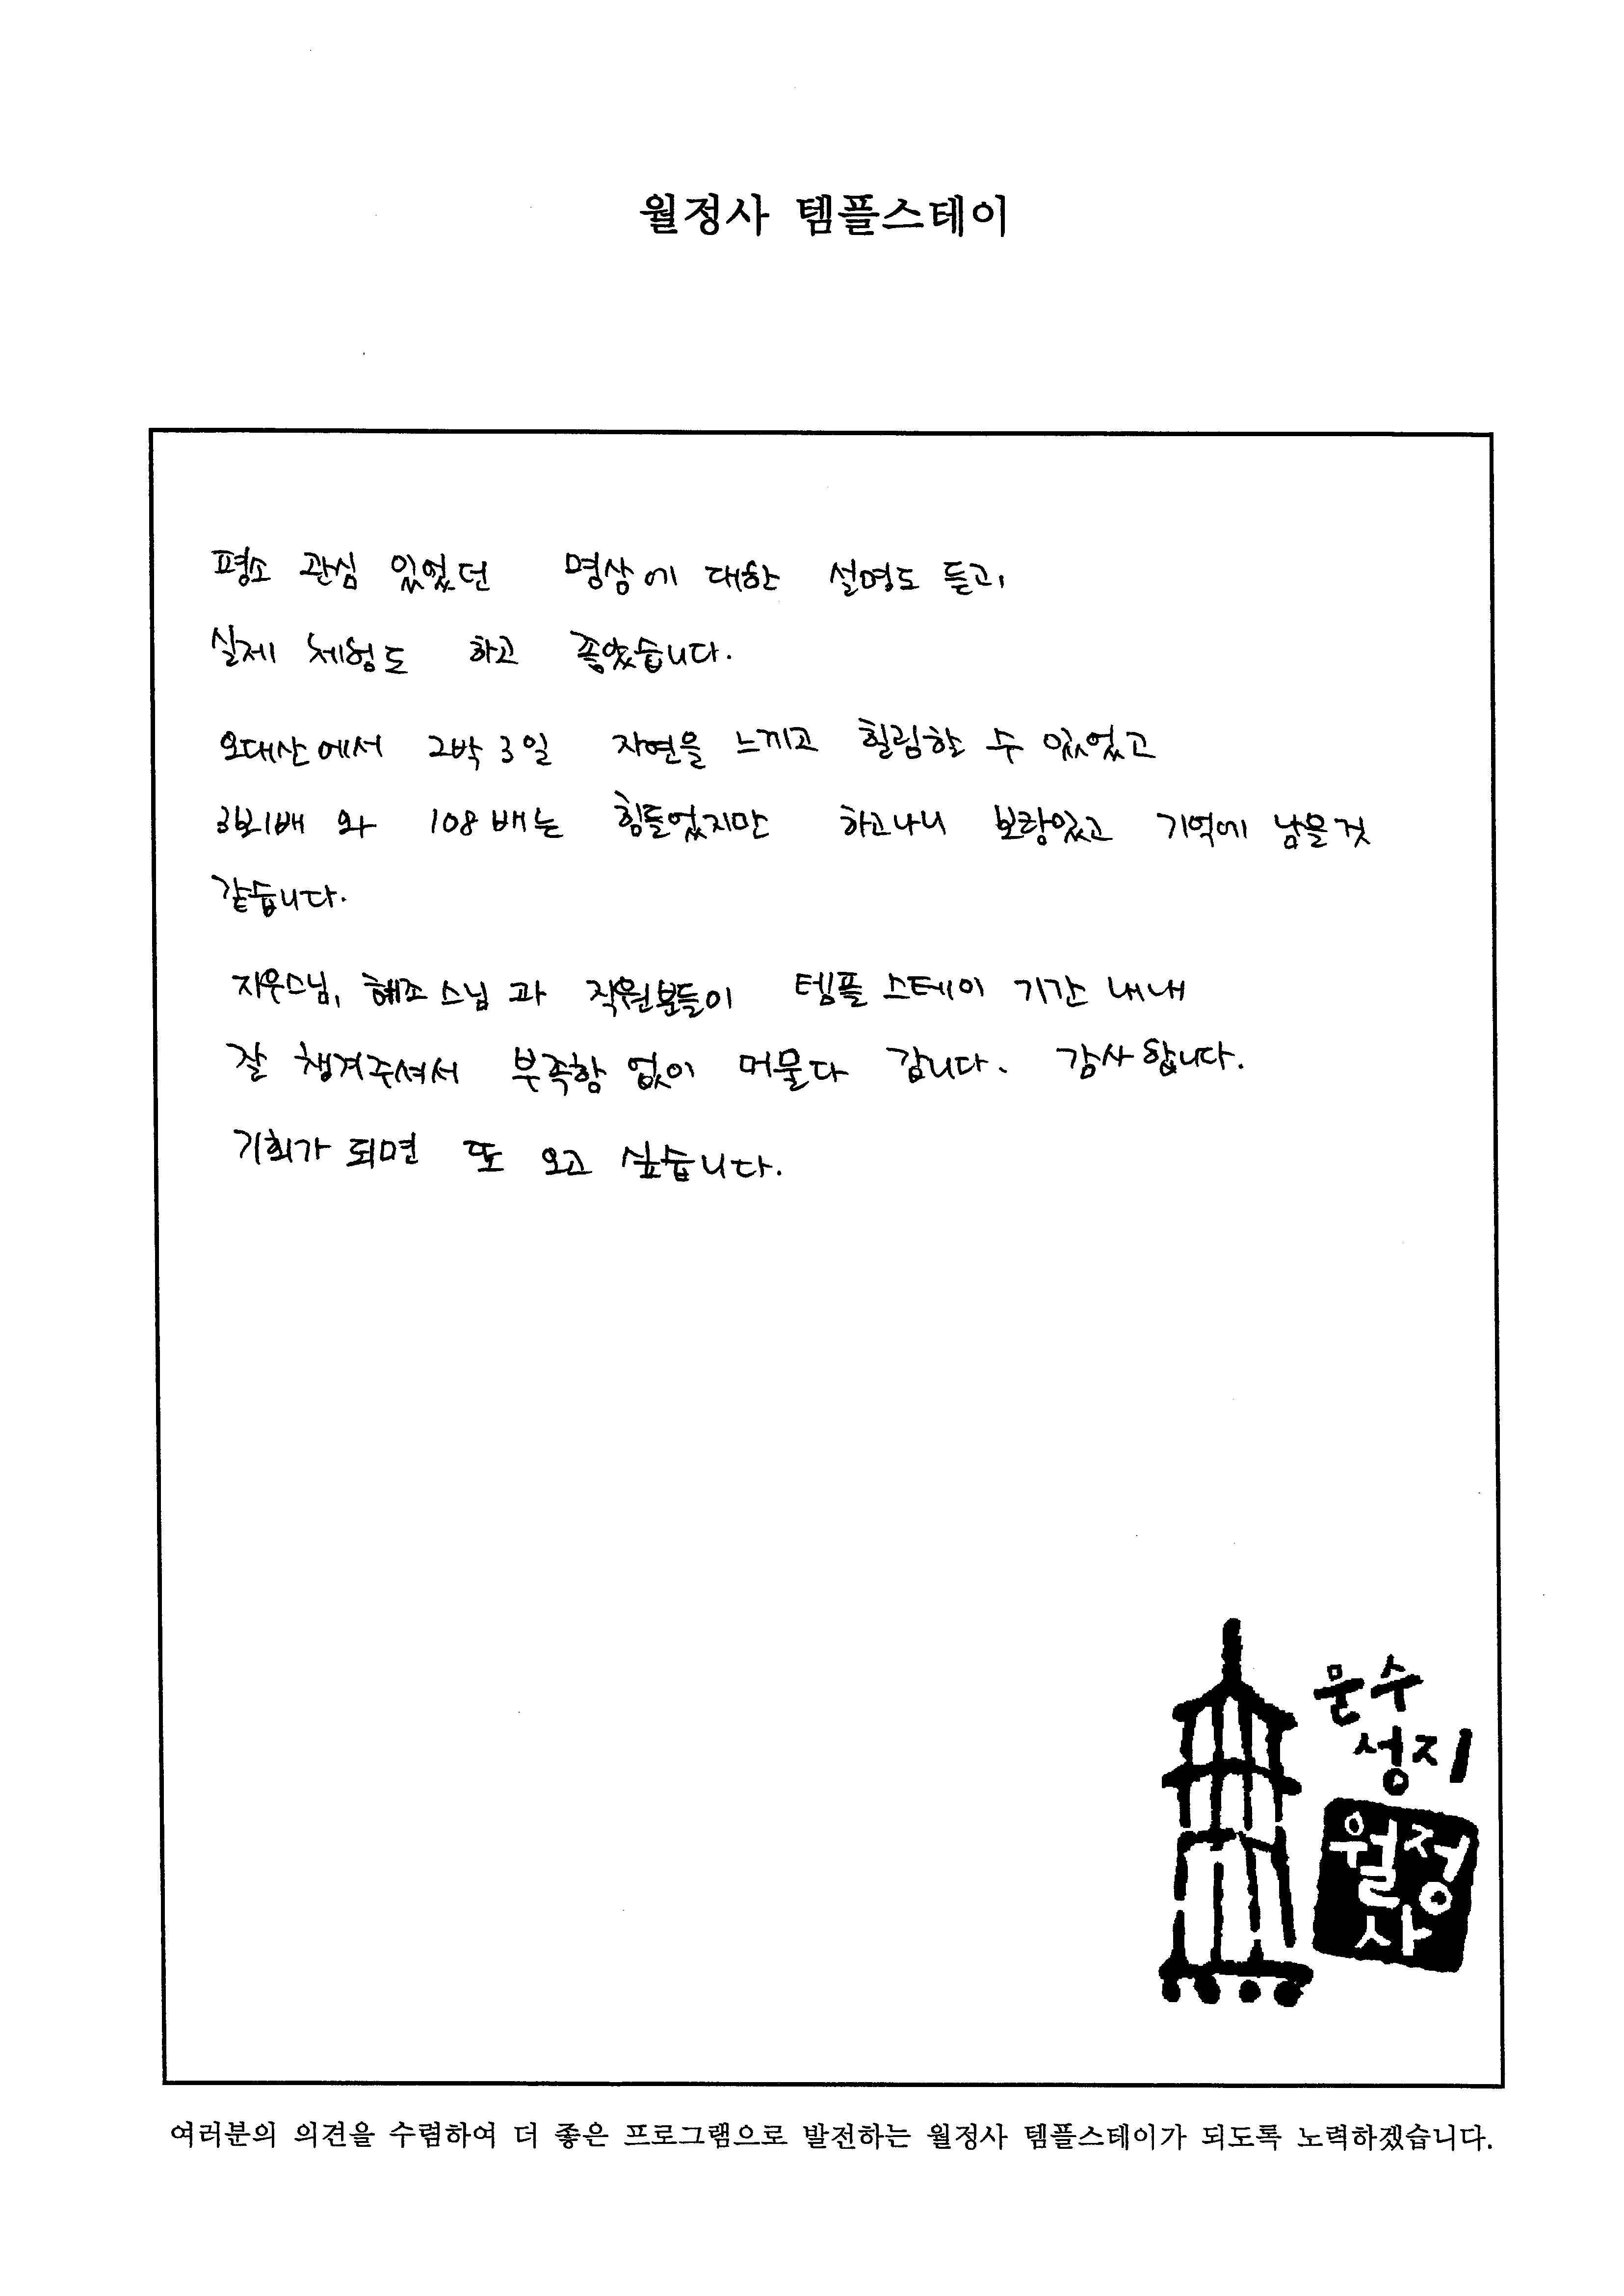 월정사 템플스테이
평소 관심 있었던 명상에 대한 설명도 듣고,
실제 체험도 하고 좋았습니다.
오대산에서 2박 3일 자연을 느끼고 힐림할 수 있었고
3보1배 와 108배는 힘들었지만 하고나니 보람있고 기억에 남을것
같습니다.
지우스님, 혜조스님과 직원분들이 템플스테이 기간 내내
잘 챙겨주셔서 부족함 없이 머물다 갑니다. 감사합니다.
기회가 되면 또 오고 싶습니다.
문수
성지
월정
사
여러분의 의견을 수렴하여 더 좋은 프로그램으로 발전하는 월정사 템플스테이가 되도록 노력하겠습니다.